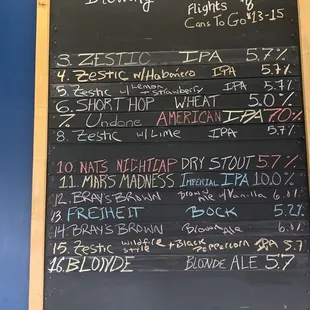 Brewing
Flights
Cans To Go $13-15
3. ZESTIC IPA 5.7%
4. Zestic w/Habanero IPA 5.7%
5. Zestic w/ Lemon + Strawberry IPA 5.7%
6. SHORT HOP WHEAT 5.0%
7. Undone AMERICAN IPA 7.0%
8. Zestic w/ Lime IPA 5.7%
10. NATS NIGHTCAP DRY STOUT 5.7%
11. MARS MADNESS IMPERIAL IPA 10.0%
12. BRAY'S BROWN Brown Ale w/Vanilla 6.0%
13 FREIHEIT BOCK 5.2%
14 BRAY'S BROWN Brown Ale 6.0%
15. Zestic wildfire style + Black Peppercorn IPA 5.7
16. BLONDE BLONDE ALE 5.7